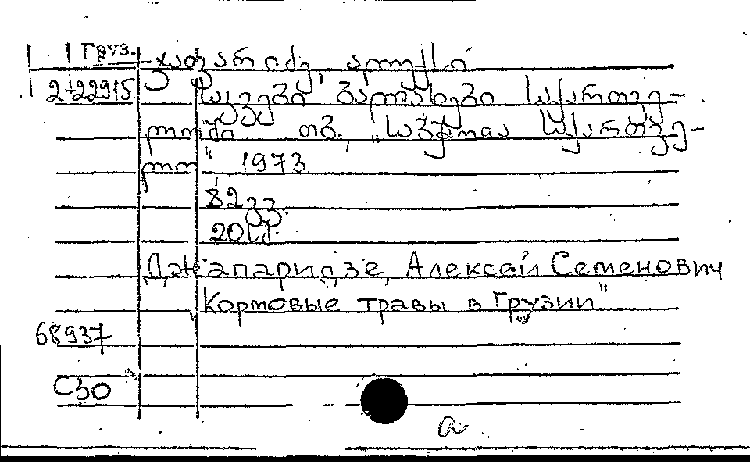 Груз. ჯაფარიძე, ალექსი
2-22915 საკვები ბალახები საქართვე-
ლოში თბ. „საბჭოთა საქართვე-
ლო" 1973
82 გვ.
20კ.
Джапаридзе, Алексей Семенович
Кормовые травы в Грузии"
68937